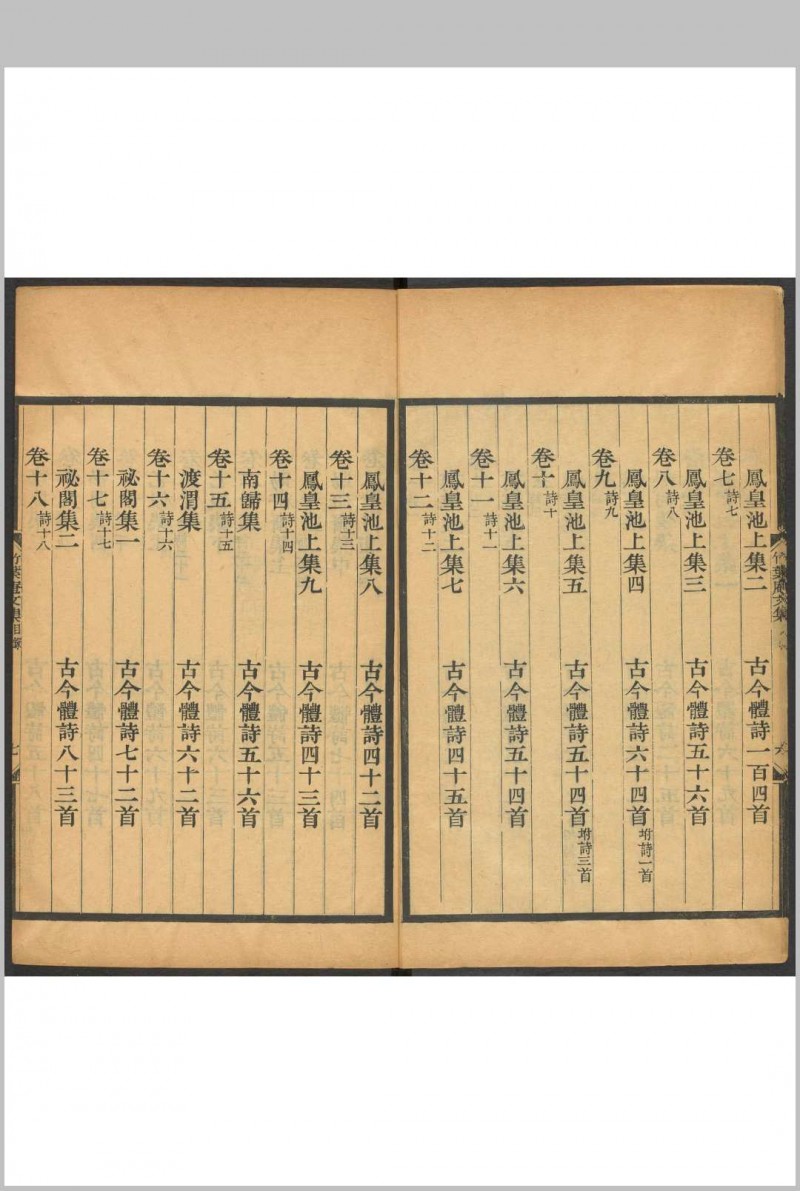 鳳皇池上集二　古今體詩一百四首
卷七 詩七
鳳皇池上集三　古今體詩五十六首
卷八 詩八
鳳皇池上集四　古今體詩六十四首 坿詩一首
卷九 詩九
鳳皇池上集五　古今體詩五十四首 坿詩三首
卷十 詩十
鳳皇池上集六　古今體詩五十四首
卷十一 詩十一
鳳皇池上集七　古今體詩四十五首
卷十二 詩十二
鳳皇池上集八　古今體詩四十二首
卷十三 詩十三
鳳皇池上集九　古今體詩四十三首
卷十四 詩十四
南歸集　古今體詩五十六首
卷十五 詩十五
渡渭集　古今體詩六十二首
卷十六 詩十六
祕閣集一　古今體詩七十二首
卷十七 詩十七
祕閣集二　古今體詩八十三首
卷十八 詩十八
竹葉庵文集目錄　七